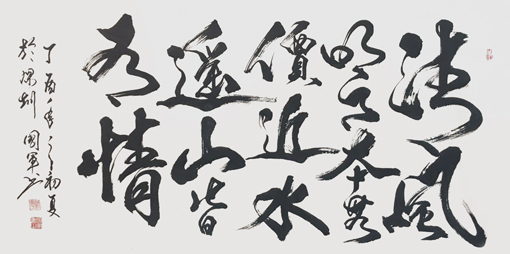 清風
明月本無
價近水
遥山皆
有情
丁酉年之初夏
於深圳 國軍书